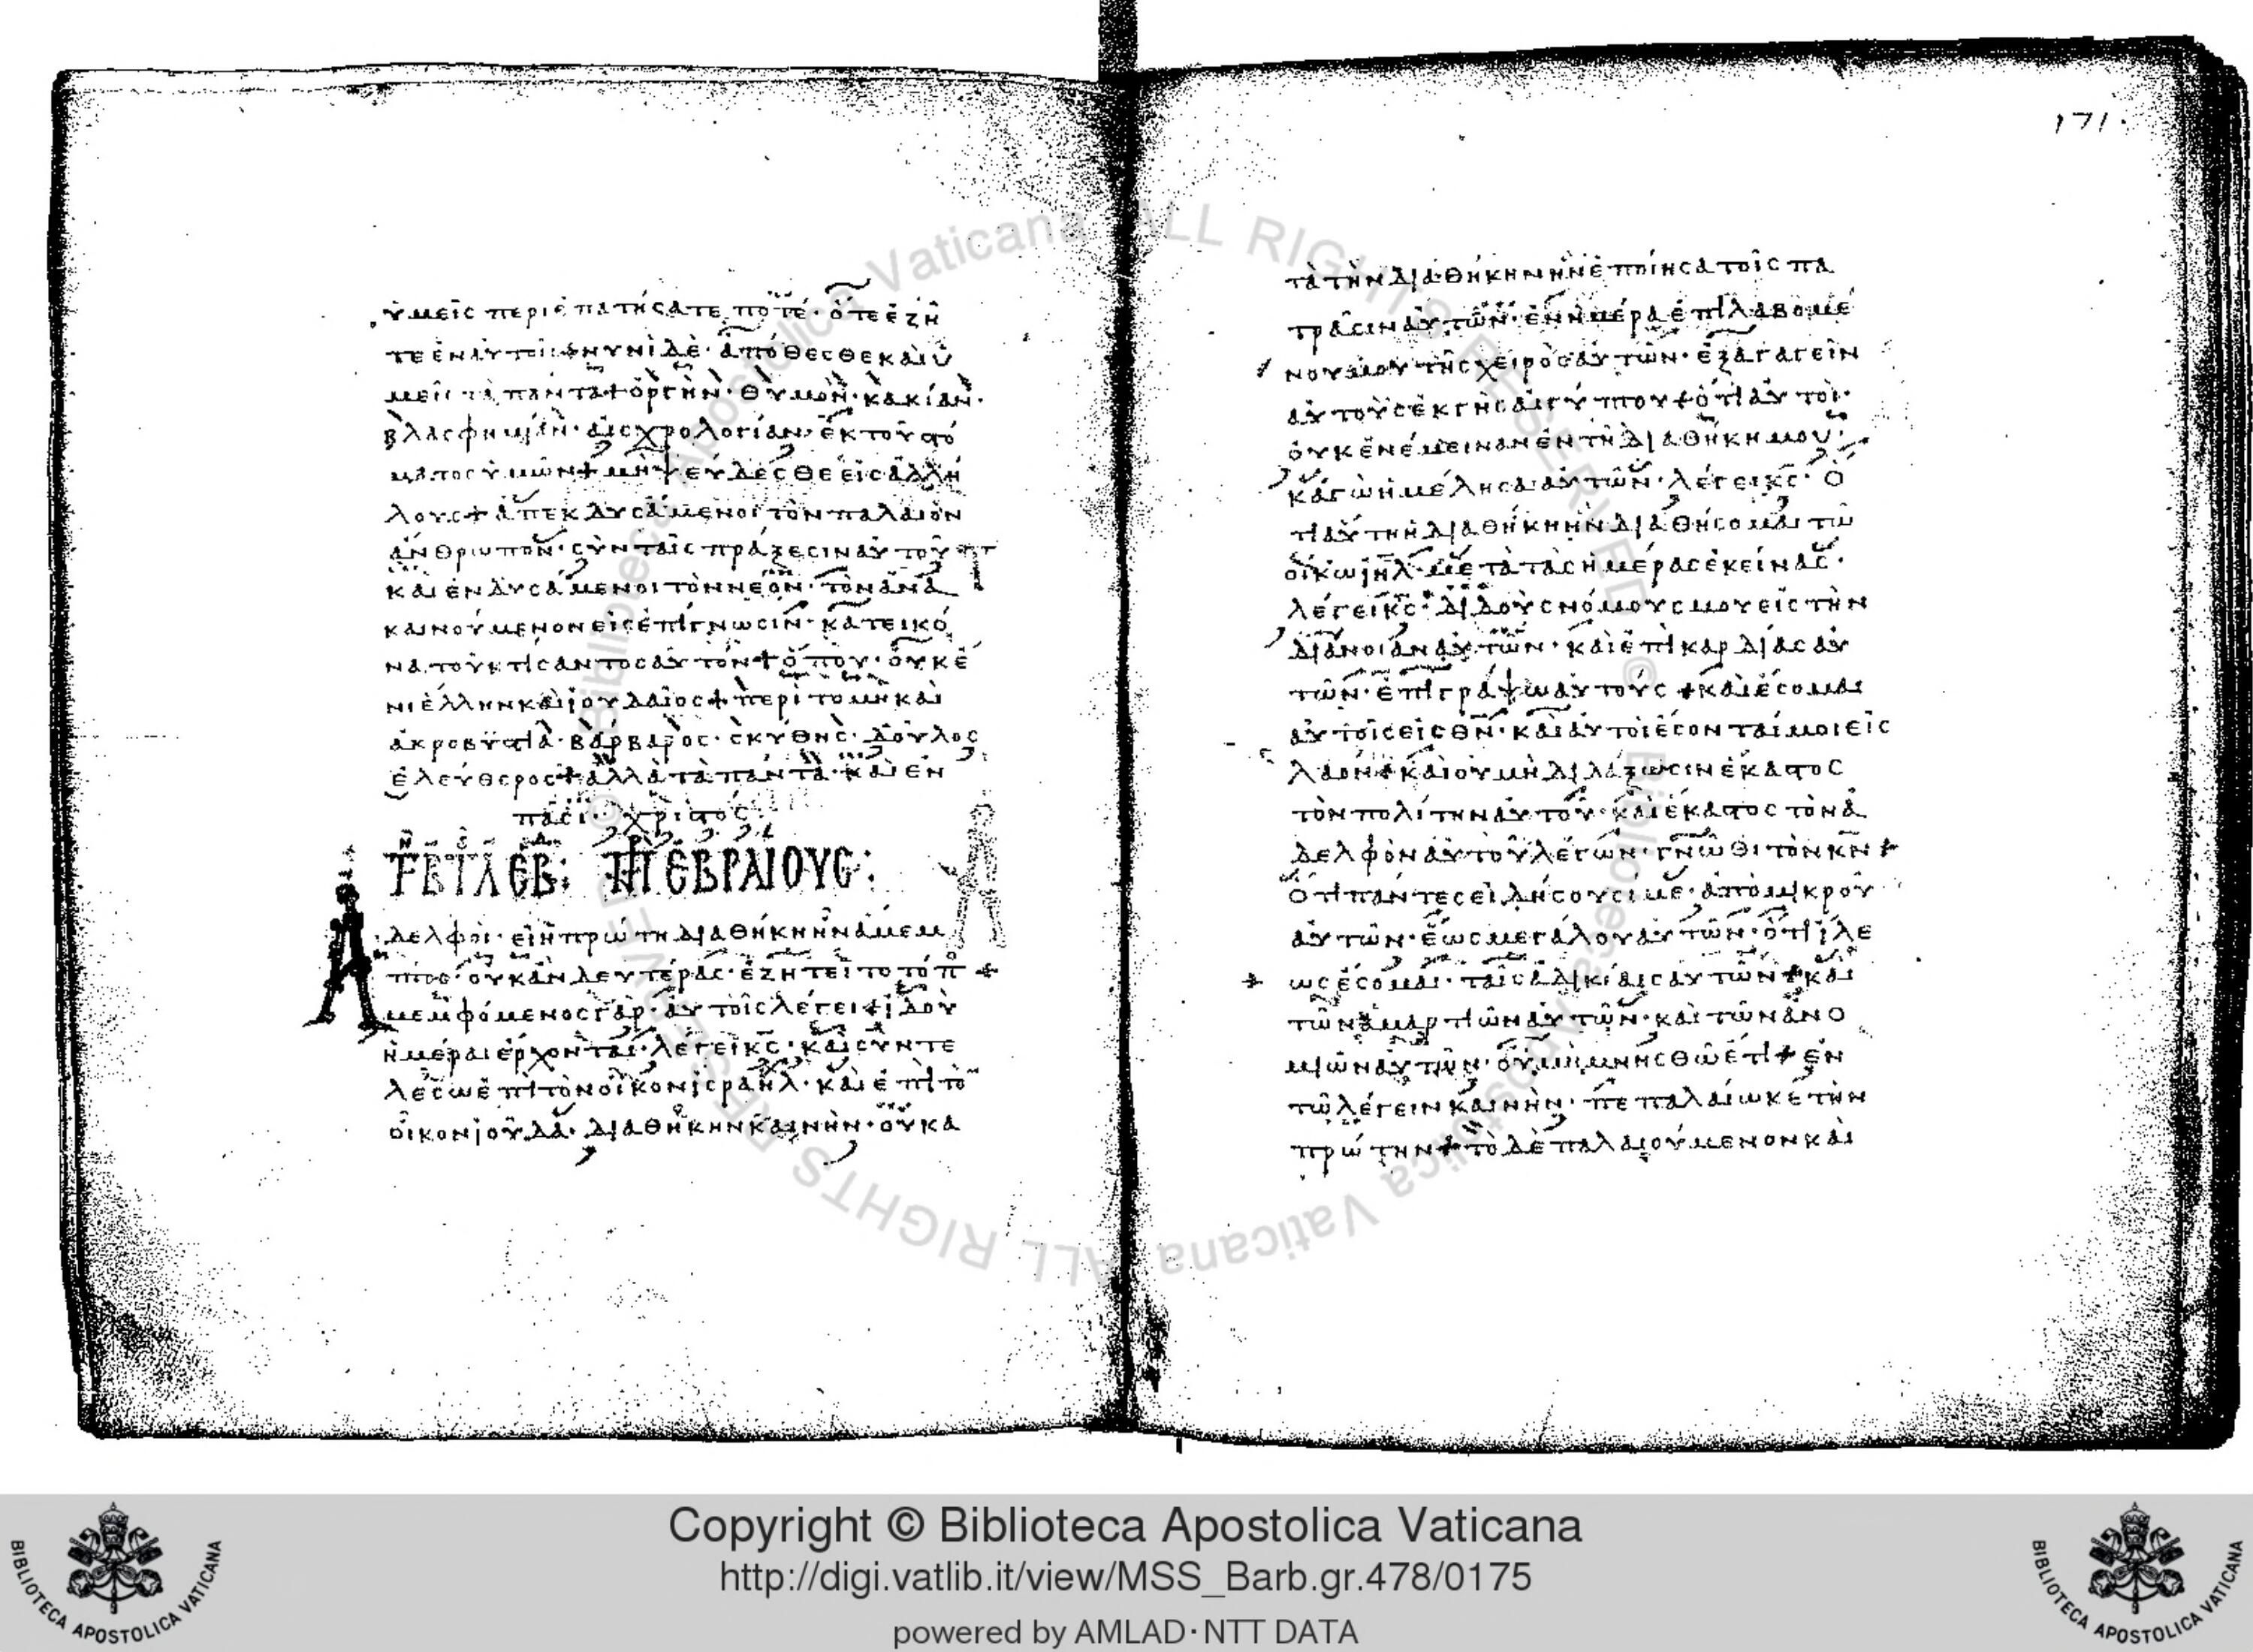 ὑμεῖς περιεπατήσατε ποτέ· ὅτε ἐζῆ
τε ἐν αὐτοῖς νυνὶ δὲ· ἀπόθεσθε καὶ ὑ
μεῖς τὰ πάντα + ὀργὴν· θυμὸν· κακίαν·
βλασφημίαν· αἰσχρολογίαν· ἐκ τοῦ στό
ματος ὑμῶν + μὴ ψεύδεσθε εἰς ἀλλή
λους + ἀπεκδυσάμενοι τὸν παλαιὸν
ἄνθρωπον· σὺν ταῖς πράξεσιν αὐτοῦ
καὶ ἐνδυσάμενοι τὸν νέον· τὸν ἀνα
καινούμενον εἰς ἐπίγνωσιν· κατ εἰκό
να τοῦ κτίσαντος αὐτόν + ὅπου· οὐκ ἔ
νι ἕλλην καὶ ἰουδαῖος + περιτομὴ καὶ
ἀκροβυστία· βάρβαρος· σκύθης· δοῦλος
ἐλεύθερος + ἀλλὰ τὰ πάντα· καὶ ἐν
πᾶσι· χριστός
ΠΡ ἙΒΡΑΙΟΥΣ:
Ἀδελφοὶ· εἰ ἡ πρώτη διαθήκη ἦν ἄμεμ
πτος· οὐκ ἂν δευτέρας· ἐζητεῖτο τόπ +
μεμφόμενος γὰρ· αὐτοῖς λέγει + ἰδοὺ
ἡμέραι ἔρχονται· λέγει κς· καὶ συντε
λέσω ἐπὶ τὸν οἶκον ἰσραήλ· καὶ ἐπὶ τὸ
οἶκον ἰούδα· διαθήκην καινὴν· οὐ κα
171·
τὰ τὴν διαθήκην ἣν ἐποίησα τοῖς πα
τράσιν αὐτῶν· ἐν ἡμέρα ἐπιλαβομέ
νου μου τῆς χειρὸς αὐτῶν· ἐξαγαγεῖν
αὐτοὺς ἐκ γῆς αἰγύπτου + ὅτι αὐτοὶ·
οὐκ ἐνέμειναν ἐν τῆ διαθήκη μου·
κἀγὼ ἠμέλησα αὐτῶν· λέγει κς· ὅ
τι αὕτη ἡ διαθήκη ἣν διαθήσομαι τῶ
οἴκω ιηλ· μετὰ τὰς ἡμέρας ἐκείνας·
λέγει κς· διδοὺς νόμους μου εἰς τὴν
διάνοιαν αὐτῶν· καὶ ἐπὶ καρδίας αὐ
τῶν· ἐπιγράψω αὐτούς + καὶ ἔσομαι
αὐτοῖς εἰς θν· καὶ αὐτοὶ ἔσονταί μοι εἰς
λαόν + καὶ οὐ μὴ διδάξωσιν ἕκαστος
τὸν πολίτην αὐτοῦ· καὶ ἕκαστος τὸν ἀ
δελφὸν αὐτοῦ λέγων· γνῶθι τὸν κν +
ὅτι πάντες εἰδήσουσί με· ἀπὸ μικροῦ
αὐτῶν· ἕως μεγάλου αὐτῶν· ὅτι ἵλε
+ ως ἔσομαι· ταῖς ἀδικίαις αὐτῶν + καὶ
τῶν ἁμαρτιῶν αὐτῶν· καὶ τῶν ἀνο
μιῶν αὐτῶν· οὐ μὴ μνησθῶ ἔτι + ἐν
τῶ λέγειν καινὴν· πεπαλαίωκε τὴν
πρώτην + τὸ δὲ παλαιούμενον καὶ
Copyright © Biblioteca Apostolica Vaticana
http://digi.vatlib.it/view/MSS_Barb.gr.478/0175
powered by AMLAD·NTT DATA
BIBLIOTECA APOSTOLICA VATICANA
BIBLIOTECA APOSTOLICA VATICANA
© Biblioteca Apostolica Vaticana ALL RIGHTS RESERVED © Biblioteca Apostolica Vaticana ALL RIGHTS RESERVED